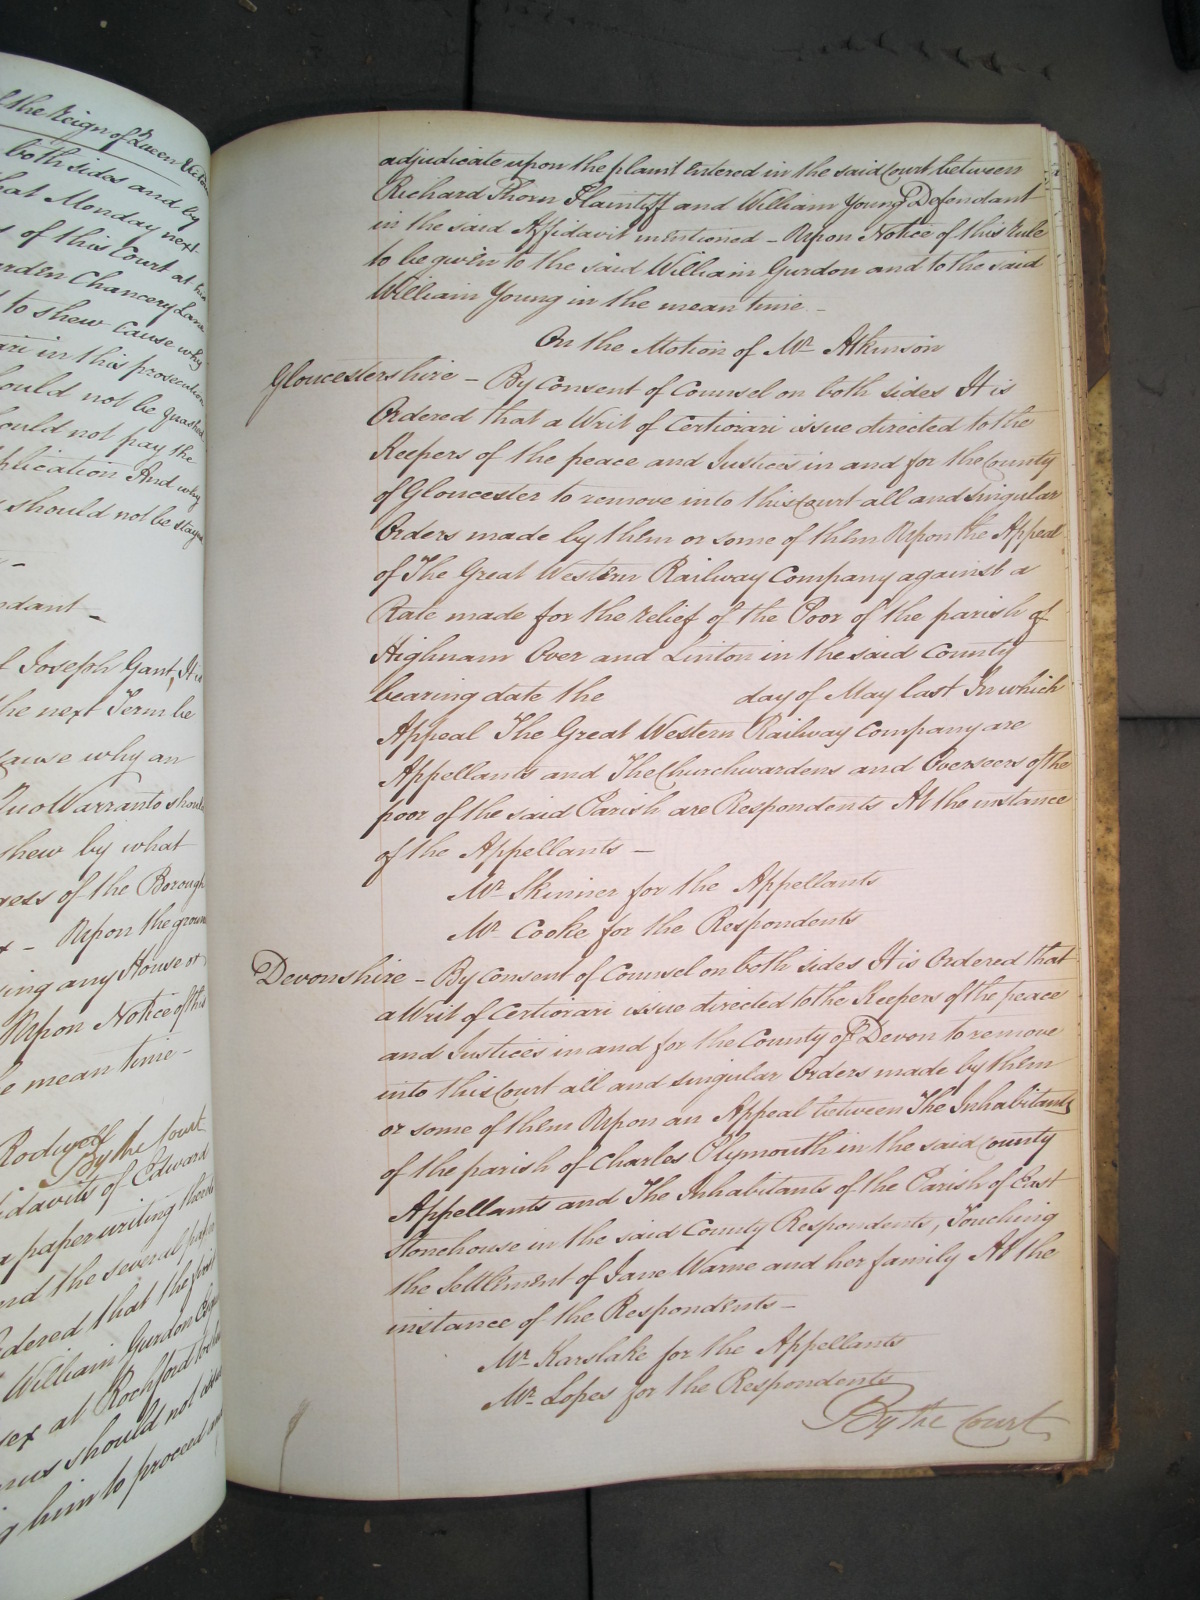 f the Reign of Queen Victoria
both sides and by
hat Monday next
of this Court at
arden Chancery Lane
to shew cause why
in this prosecution
ould not be quashed
ould not pay the
plication And why
should not be stayed
ndant
f Joseph Gant, It is
the next Term be
cause why an
Quo Warranto should
shew by what
gess of the Borough
Upon the ground
sing any House or
Upon Notice of this
e mean time -
Rodwell
By the Court
idavits of Edward
a paper writing thereto
nd the several paper
dered that the first
William Gurdon
sex at Rochford
should not
g him to proceed and
adjudicate upon the plaint Entered in the said Court between
Richard Thorn Plaintiff and William Young Defendant
in the said Affidavit mentioned - Upon Notice of this Rule
to be given to the said William Gurdon and to the said
William Young in the mean time -
On the Motion of Mr Atkinson
Gloucestershire - By Consent of Counsel on both sides It is
Ordered that a Writ of Certiorari issue directed to the
Keepers of the peace and Justices in and for the County
of Gloucester to remove into this Court all and singular
Orders made by them or some of them Upon the Appeal
of The Great Western Railway Company against a
Rate made for the relief of the Poor of the parish of
Highnam Over and Linton in the said County
bearing date the day of May last In which
Appeal The Great Western Railway Company are
Appellants and The Churchwardens and Overseers of the
poor of the said Parish are Respondents At the instance
of the Appellants -
Mr Skinner for the Appellants
Mr Cooke for the Respondents
Devonshire - By Consent of Counsel on both sides It is Ordered that
a Writ of Certiorari issue directed to the Keepers of the peace
and Justices in and for the County of Devon to remove
into this Court all and singular Orders made by them
or some of them Upon an Appeal between The Inhabitants
of the parish of Charles Plymouth in the said County
Appellants and The Inhabitants of the Parish of East
Stonehouse in the said County Respondents, Touching
the Settlement of Jane Warne and her family At the
instance of the Respondents -
Mr Karslake for the Appellants
Mr Lopes for the Respondents
By the Court